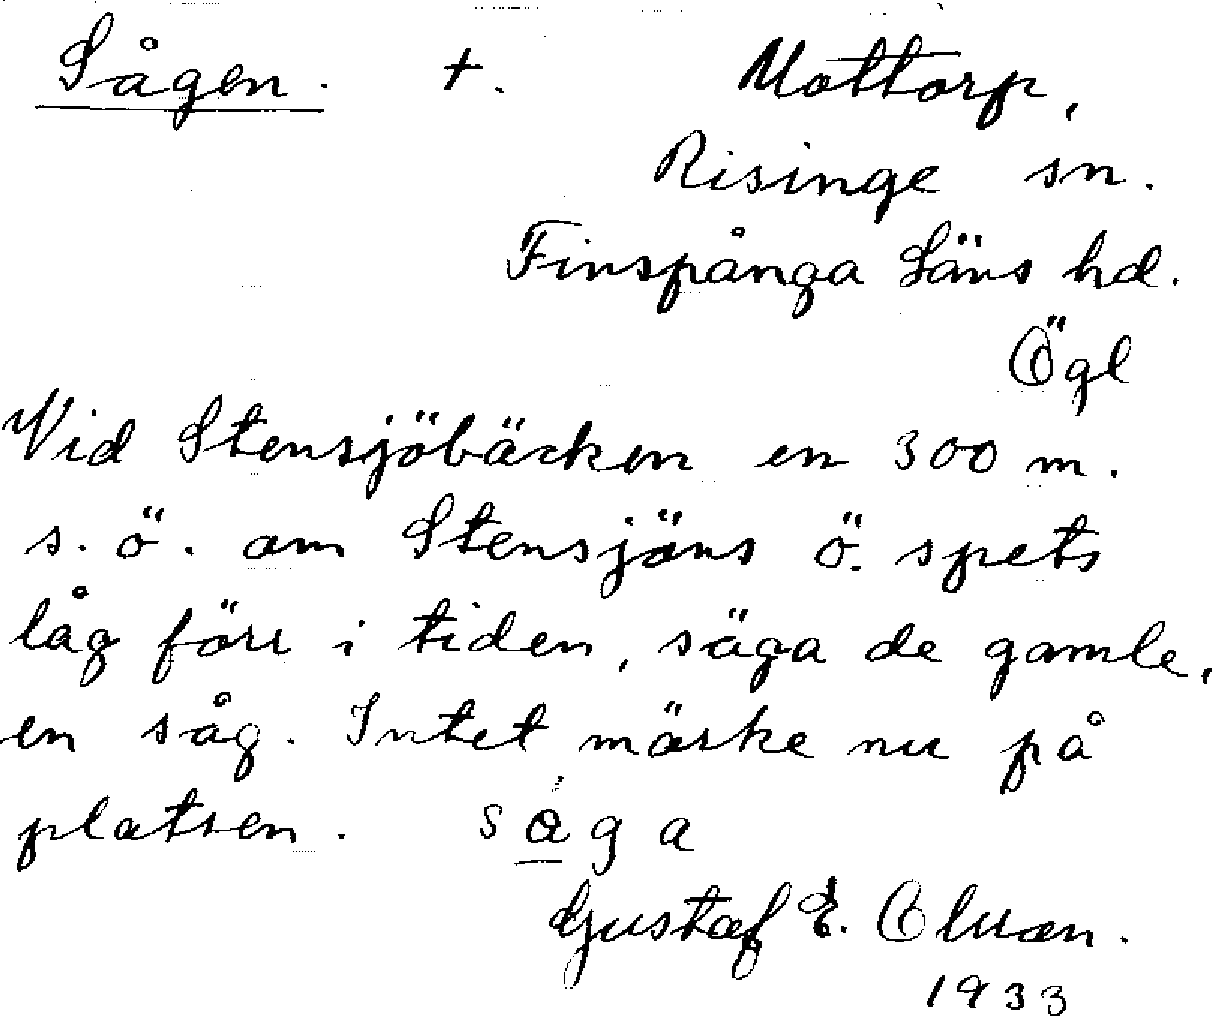 Sågen. +. Mottorp,
Risinge sn.
Finspånga Läns hd.
Ögl
Vid Stensjöbäcken en 300 m.
s. ö. om Stensjöns ö. spets
låg förr i tiden, säga de gamle,
en såg. Intet märke nu på
platsen. såga
Gustaf E.
1933